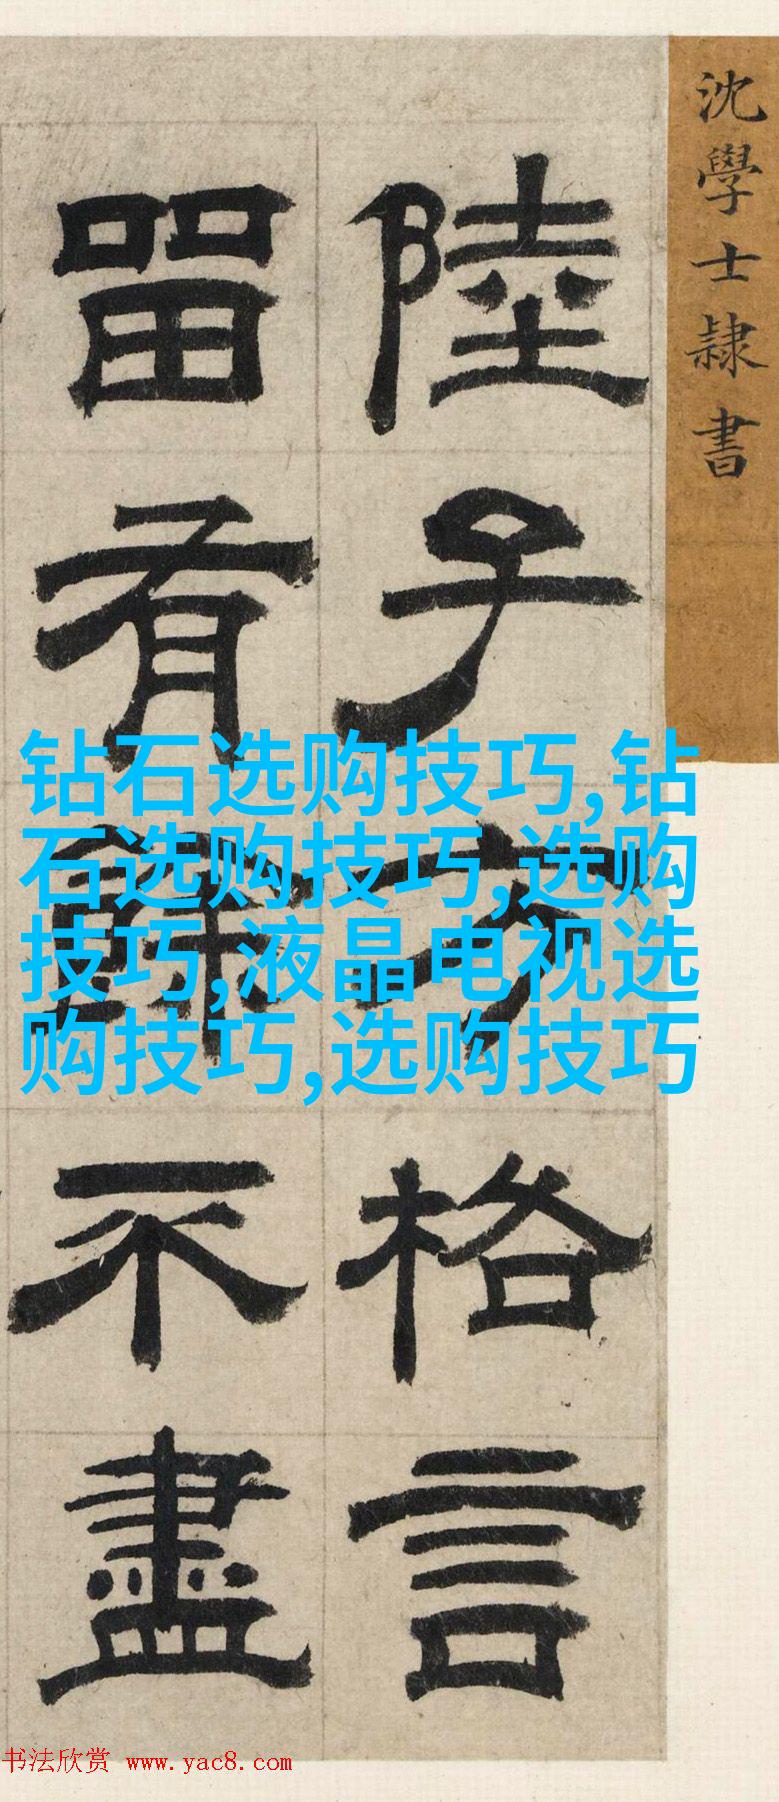 沈學士隸書
陸子方格言
畱有餘不盡
钻石选购技巧,钻
石选购技巧,选购
技巧,液晶电视选
购技巧,选购技巧
书法欣赏 www.yac8.com